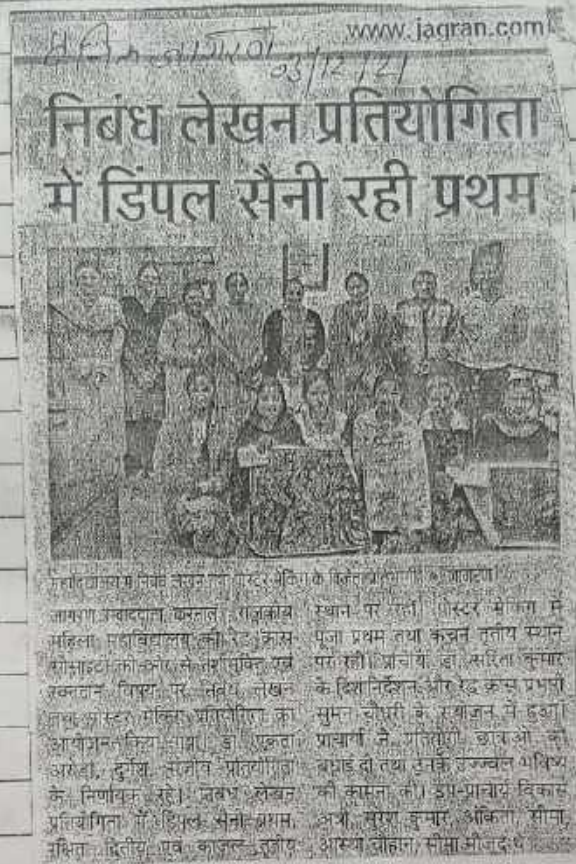 www.jagran.com
दैनिक जागरण
03/12/21
निबंध लेखन प्रतियोगिता
में डिंपल सैनी रही प्रथम
महाविद्यालय में निबंध लेखन तथा पोस्टर मेकिंग के विजेता प्रतिभागी ● जागरण
जागरण संवाददाता, करनाल : राजकीय
महिला महाविद्यालय की रेड क्रास
सोसाइटी की ओर से नशामुक्ति एवं
रक्तदान विषय पर निबंध लेखन
तथा पोस्टर मेकिंग प्रतियोगिता का
आयोजन किया गया। डा.
अरोड़ा, दुर्गेश, प्रतियोगिता
के निर्णायक रहे। निबंध लेखन
प्रतियोगिता में डिंपल सैनी प्रथम,
रक्षित द्वितीय एवं काजल तृतीय
स्थान पर रहीं। पोस्टर मेकिंग में
पूजा प्रथम तथा कंचन तृतीय स्थान
पर रही। प्राचार्य डा. सरिता कुमार
के दिशा निर्देशन और रेड क्रास प्रभारी
सुमन चौधरी के संयोजन में हुआ।
प्राचार्या ने प्रतिभागी छात्राओं को
बधाई दी तथा उनके उज्ज्वल भविष्य
की कामना की। उप-प्राचार्य विकास
अत्री, सुरेश कुमार, अंकिता, सीमा,
आस्था चौहान, सीमा मौजूद थे।